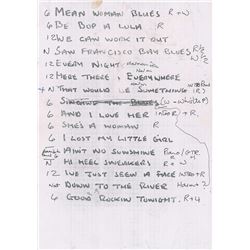 6 MEAN WOMAN BLUES R + W
6 BE BOP A LULA R
12 WE CAN WORK IT OUT
N SAN FRANCISCO BAY BLUES R/2 W/2
12 EVERY NIGHT
12 HERE THERE & EVERYWHERE
N THAT WOULD BE SOMETHING. R)
6 SINGING THE BLUES (W - WHISTLE)
6 AND I LOVE HER INTRO + R.
6 SHE'S A WOMAN R
6 I LOST MY LITTLE GIRL
AIN'T NO SUNSHINE PIANO/GTR R W
N HI HEEL SNEAKERS R W
12 I'VE JUST SEEN A FACE INTRO + R
DOWN TO THE RIVER
6 GOOD ROCKIN TONIGHT. R + 4